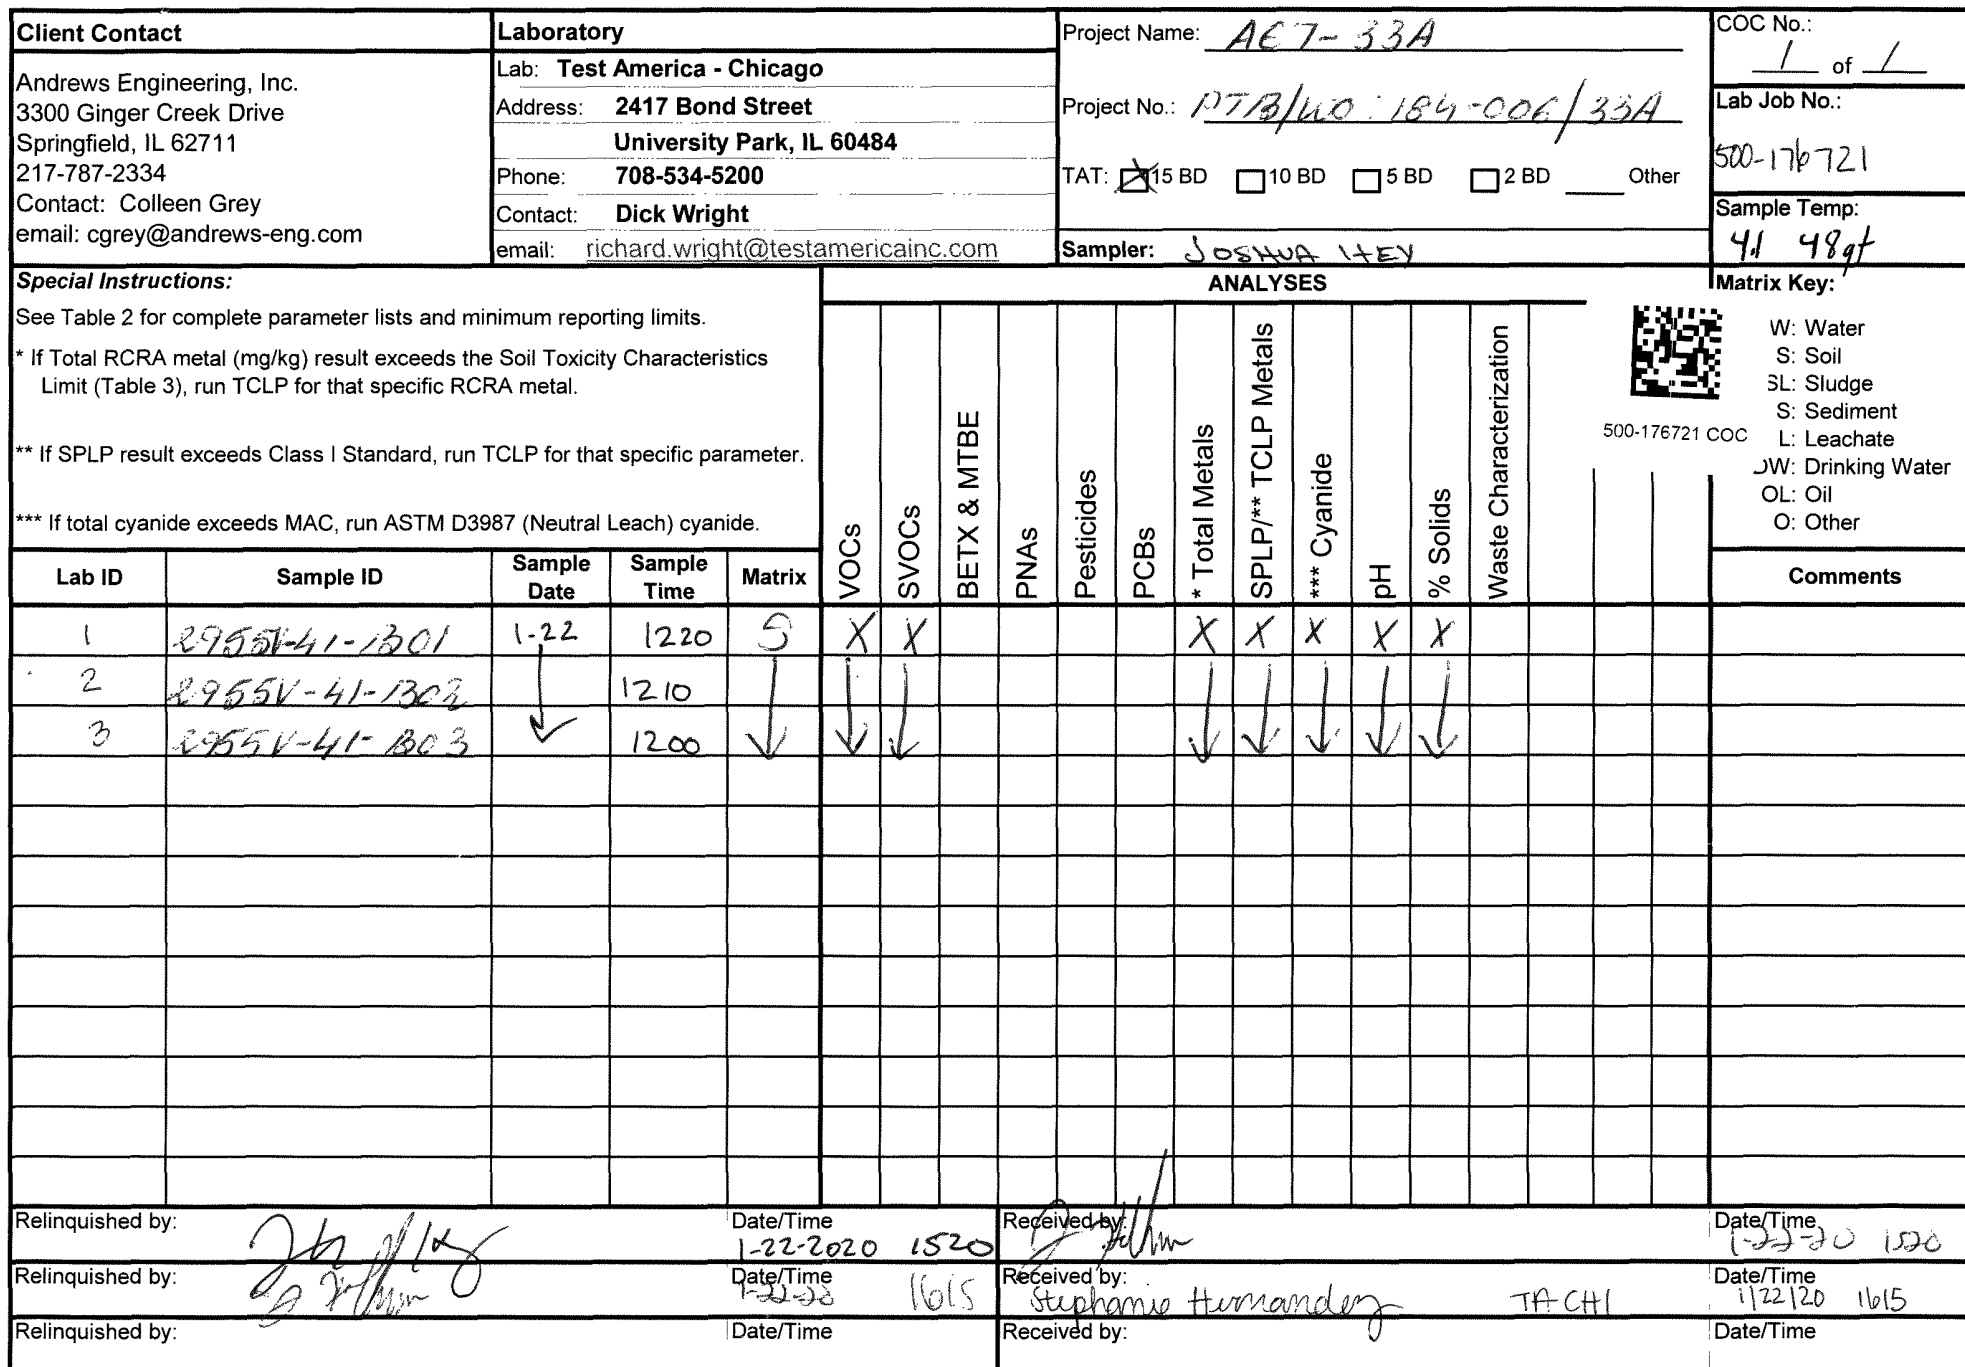 Client Contact
Andrews Engineering, Inc.
3300 Ginger Creek Drive
Springfield, IL 62711
217-787-2334
Contact: Colleen Grey
email: cgrey@andrews-eng.com
Laboratory
Lab: Test America - Chicago
Address: 2417 Bond Street
University Park, IL 60484
Phone: 708-534-5200
Contact: Dick Wright
email: richard.wright@testamericainc.com
Project Name: AE7-33A
Project No.: PTB/WO: 184-006/33A
TAT: 15 BD 10 BD 5 BD 2 BD Other
Sampler: JOSHUA HEY
COC No.:
1 of 1
Lab Job No.:
500-176721
Sample Temp:
4.1
Special Instructions:
See Table 2 for complete parameter lists and minimum reporting limits.
* If Total RCRA metal (mg/kg) result exceeds the Soil Toxicity Characteristics
Limit (Table 3), run TCLP for that specific RCRA metal.
** If SPLP result exceeds Class I Standard, run TCLP for that specific parameter.
*** If total cyanide exceeds MAC, run ASTM D3987 (Neutral Leach) cyanide.
ANALYSES
VOCs
SVOCs
BETX & MTBE
PNAs
Pesticides
PCBs
* Total Metals
SPLP/** TCLP Metals
*** Cyanide
pH
% Solids
Waste Characterization
500-176721 COC
Matrix Key:
W: Water
S: Soil
SL: Sludge
S: Sediment
L: Leachate
DW: Drinking Water
OL: Oil
O: Other
Lab ID Sample ID Sample Date Sample Time Matrix Comments
1 2955V-41-B01 1-22 1220 S X X X X X X X
2 2955V-41-B02 1210
3 2955V-41-B03 1200
Relinquished by: Date/Time 1-22-2020 1520 Received by: Date/Time 1-22-20 1520
Relinquished by: Date/Time 1-22-20 1615 Received by: Stephanie Hernandez TA CHI Date/Time 1/22/20 1615
Relinquished by: Date/Time Received by: Date/Time